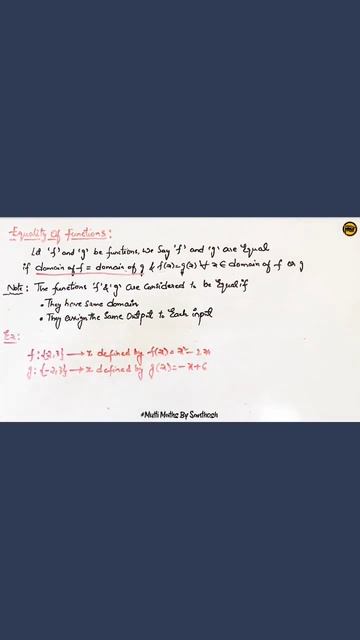 Equality of functions:
Let 'f' and 'g' be functions, we say 'f' and 'g' are Equal
if domain of f = domain of g & f(x)=g(x) ∀ x ∈ domain of f or g
Note: The functions 'f' & 'g' are considered to be Equal if
• They have same domain
• They assign the same output to Each input
Ex:
f: {-2,3} → defined by f(x) = x²-2x
g: {-2,3} → defined by g(x) = -x+6
#Multi Maths By Santhosh